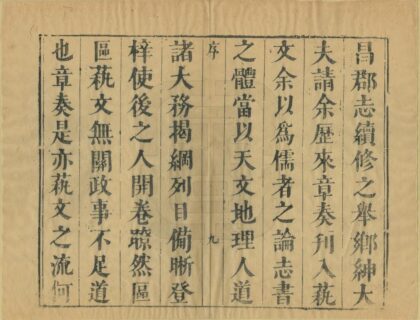 昌郡志續修之舉鄉紳大
夫請余歷來章奏刊入蓺
文余以爲儒者之論志書
之體當以天文地理人道
序 九
諸大務揭綱列目備晰登
梓使後之人開卷瞭然區
區蓺文無關政事不足道
也章奏是亦蓺文之流何